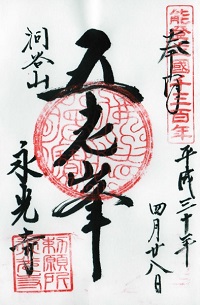 能登立國千三百年
奉拝
平成三十年
四月廿八日
五老峯
洞谷山
永光寺
勅願所